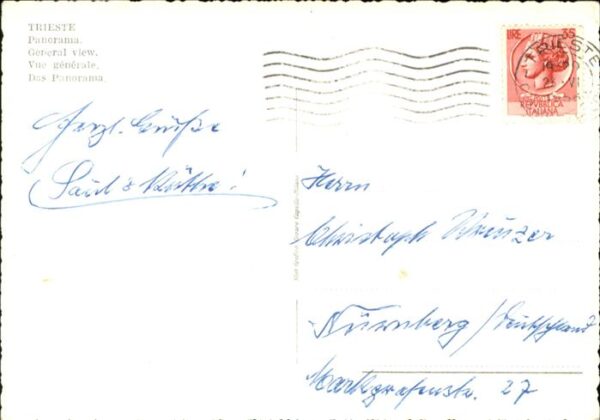 TRIESTE
Panorama.
General view.
Vue générale.
Das Panorama.
LIRE 35
REPVBBLICA
ITALIANA
TRIESTE
Herzl. Grüße
Herrn
Christoph
Nürnberg / Deutschland
Markgrafenstr. 27